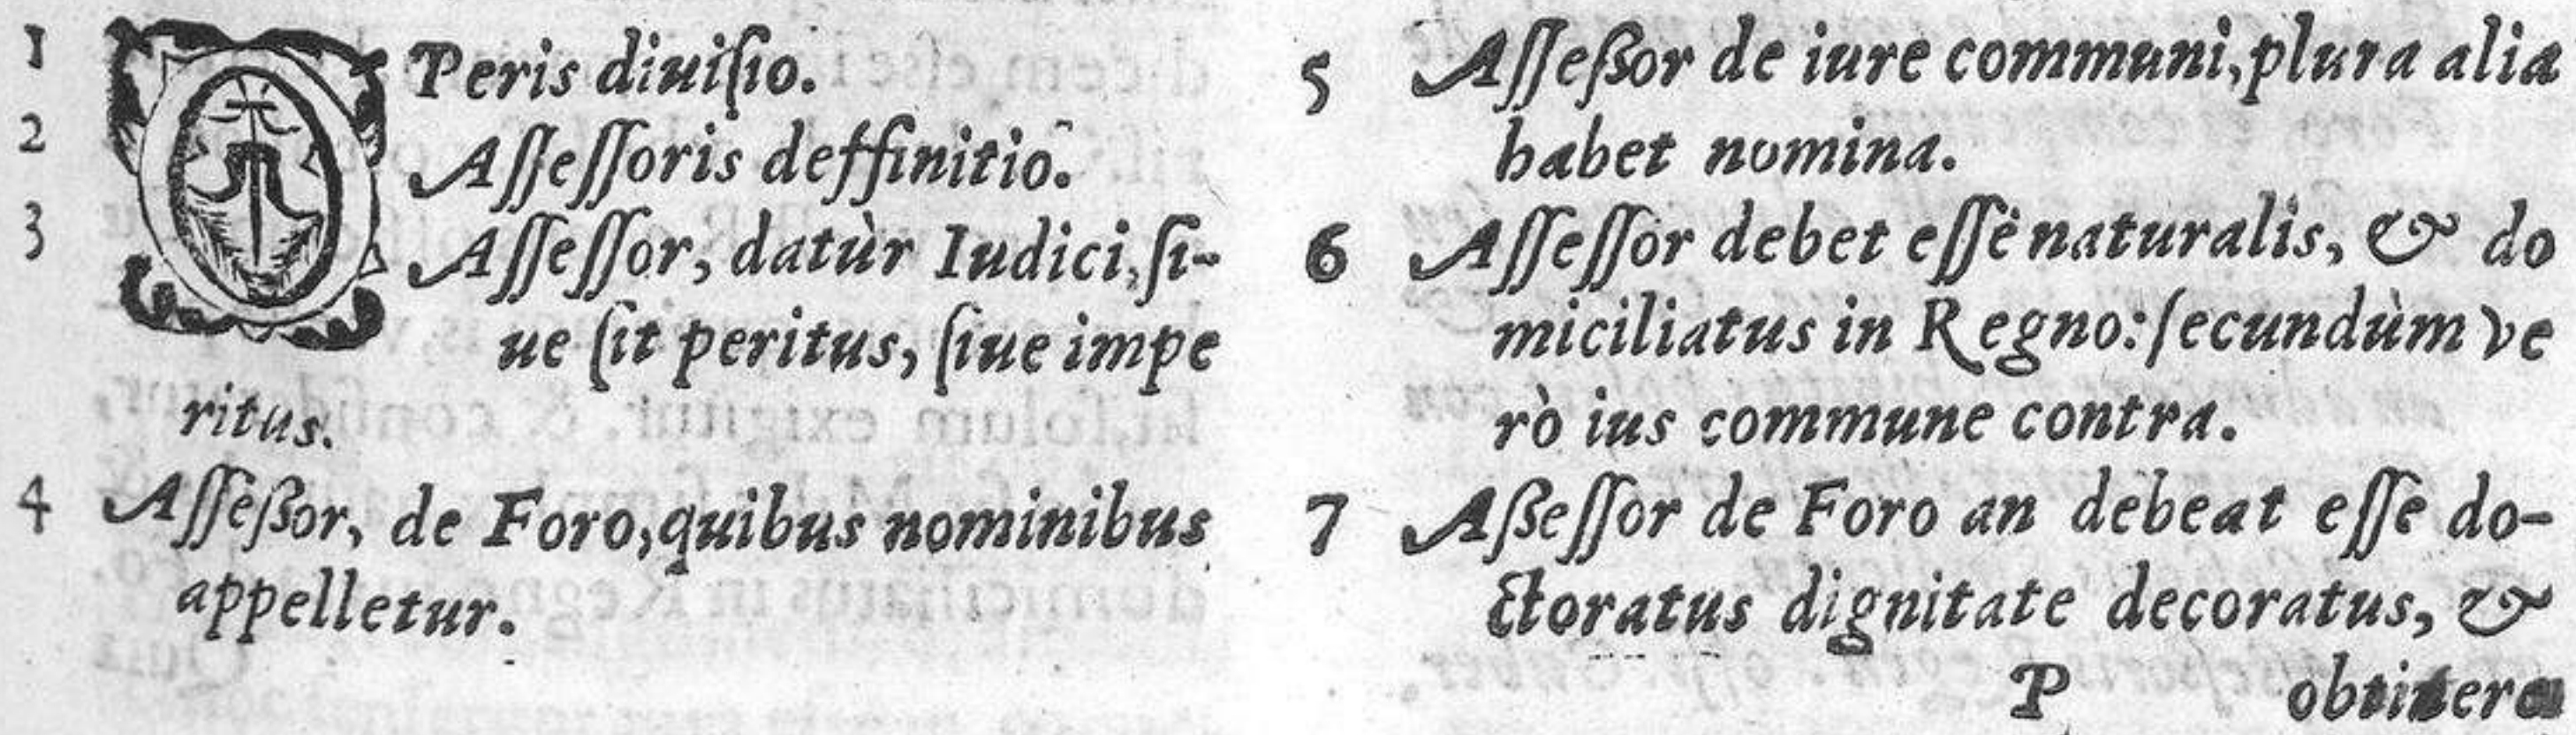 1 OPeris diuiſio.
2 Aſſeſſoris deffinitio.
3 Aſſeſſor, datùr Iudici, ſi-
ue ſit peritus, ſiue impe
ritus.
4 Aſſeßor, de Foro, quibus nominibus
appelletur.
5 Aſſeßor de iure communi, plura alia
habet nomina.
6 Aſſeſſor debet eſſe naturalis, & do
miciliatus in Regno: ſecundùm ve
rò ius commune contra.
7 Aßeſſor de Foro an debeat eſſe do-
ctoratus dignitate decoratus, &
P obtinere